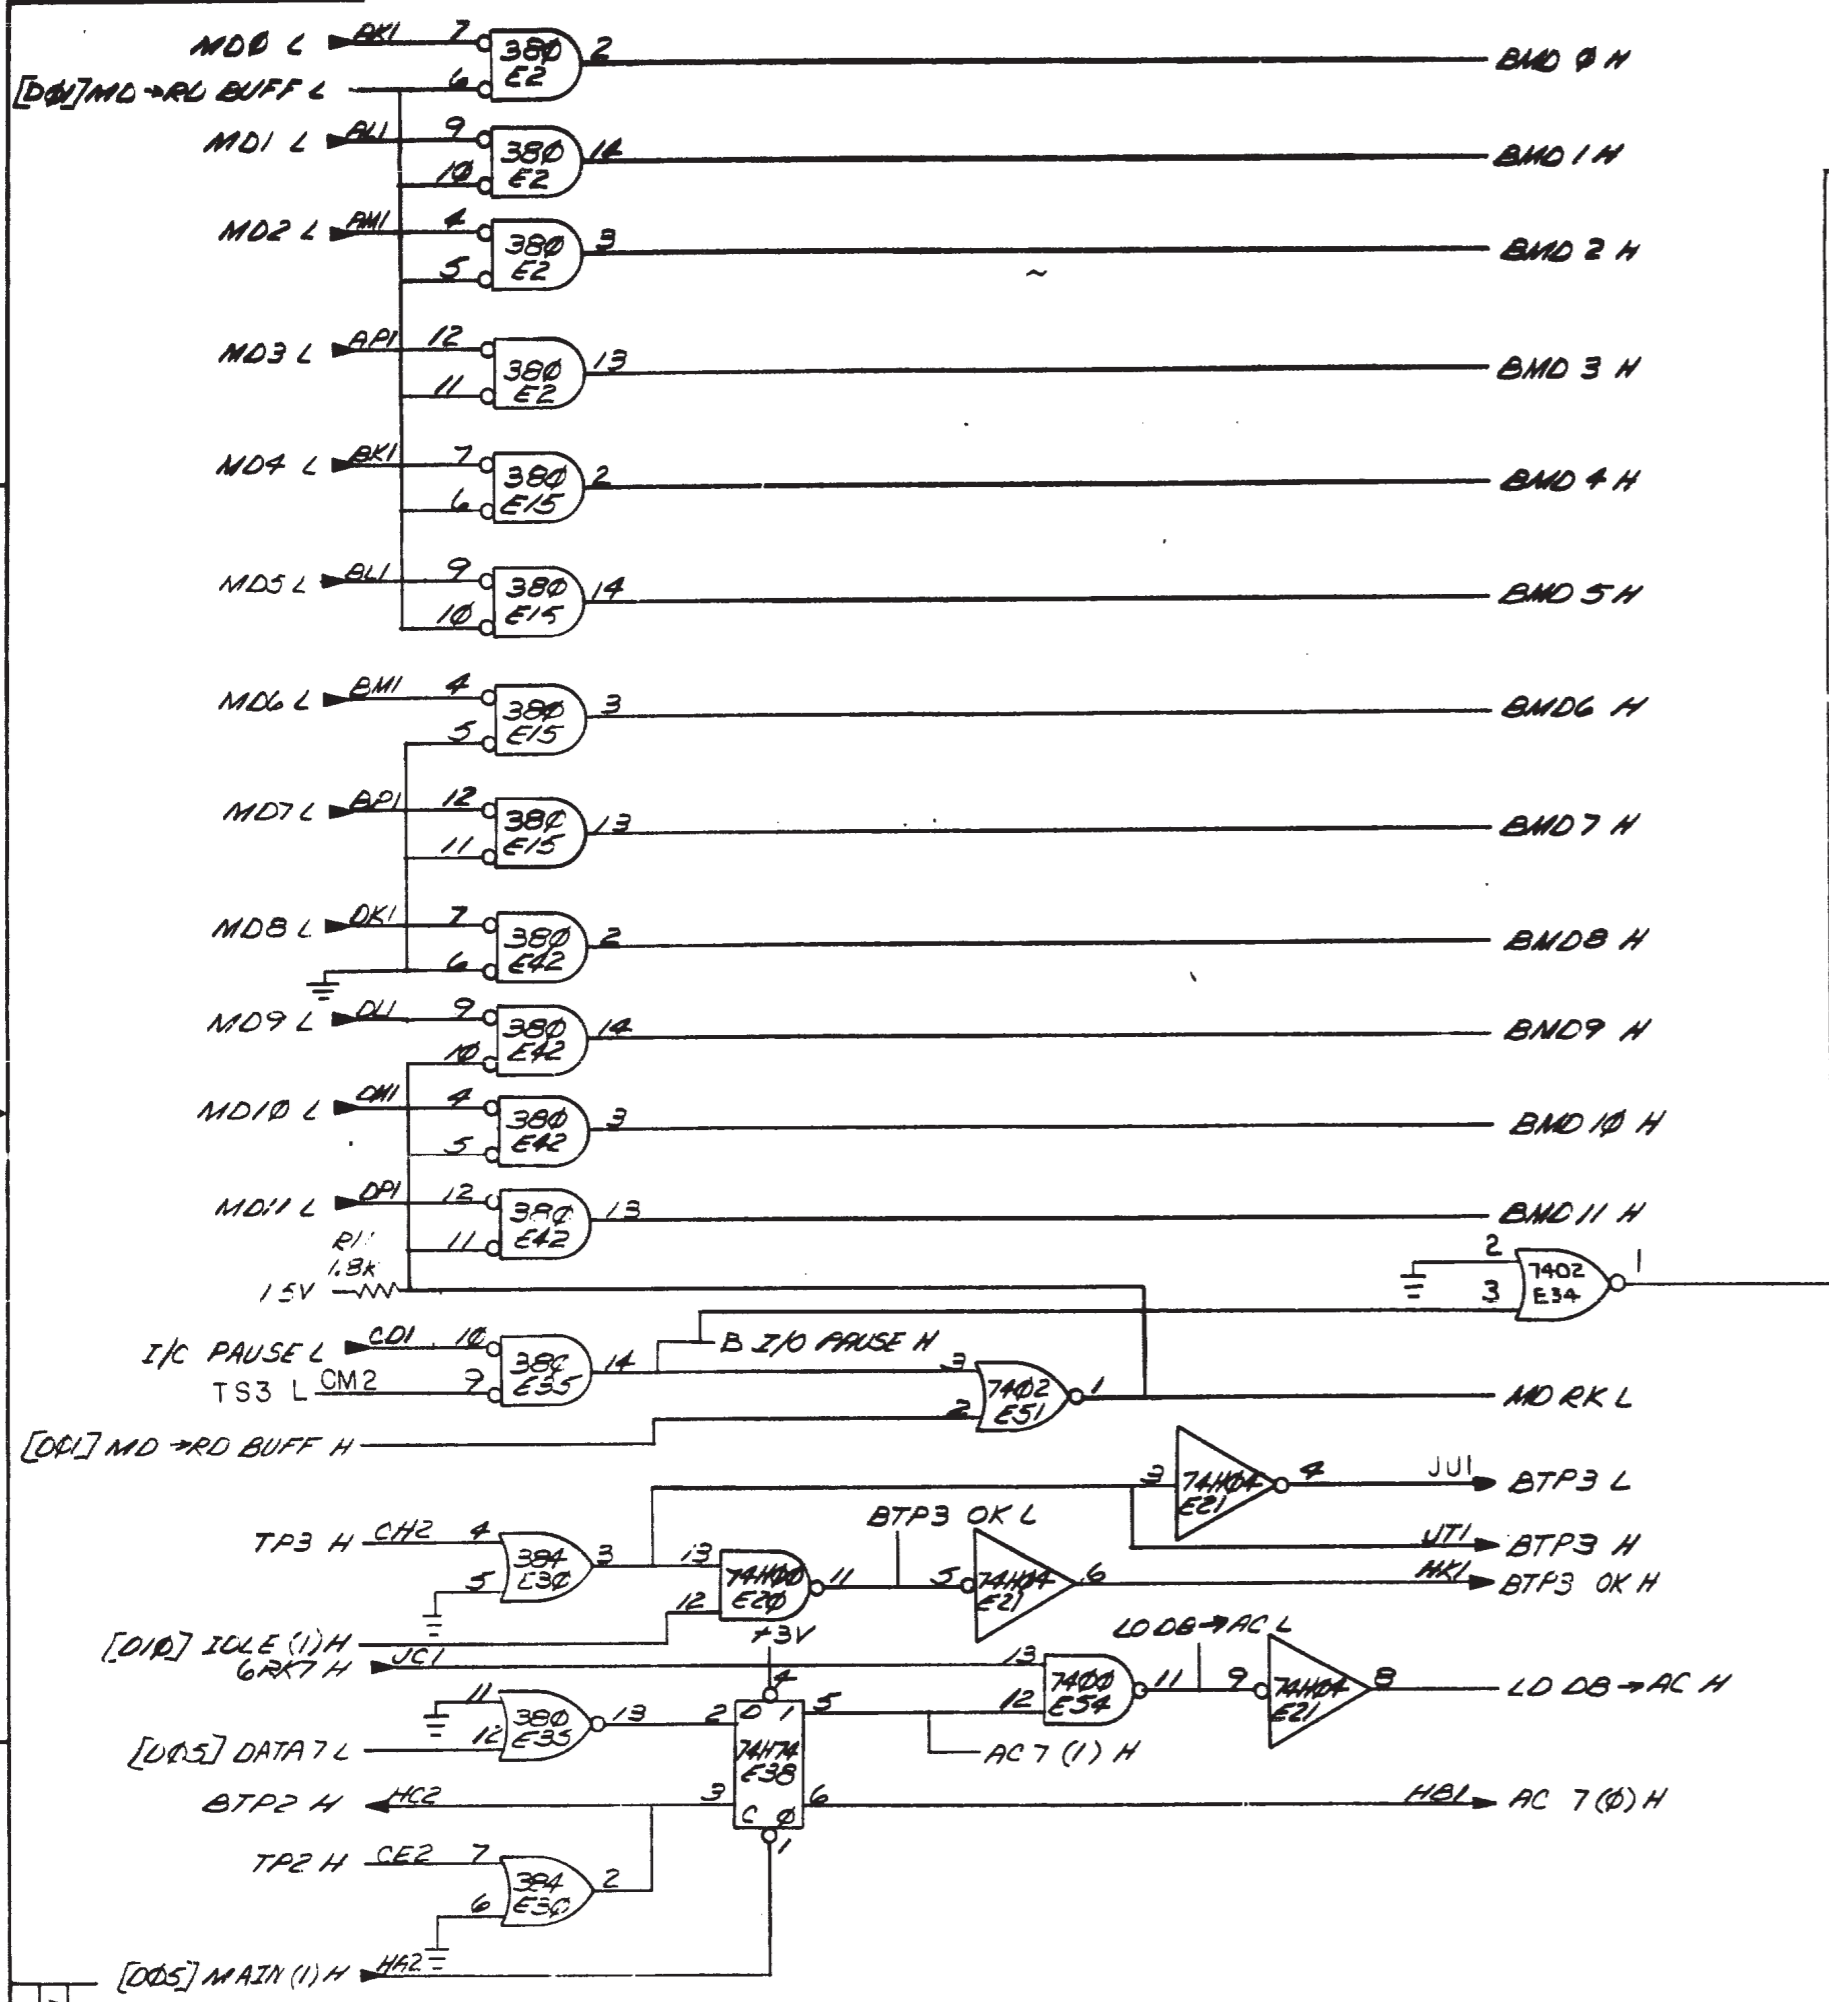 MDØ L AK1 7 380 E2 2 BMD Ø H
[DØ1] MD→RD BUFF L 6
MD1 L AL1 9 38Ø E2 14 BMD 1 H
10
MD2 L AM1 4 38Ø E2 3 BMD 2 H
5
MD3 L AP1 12 38Ø E2 13 BMD 3 H
11
MD4 L BK1 7 38Ø E15 2 BMD 4 H
6
MD5 L BL1 9 38Ø E15 14 BMD 5 H
1Ø
MD6 L BM1 4 38Ø E15 3 BMD6 H
5
MD7 L BP1 12 38Ø E15 13 BMD 7 H
11
MD8 L DK1 7 38Ø E42 2 BMD8 H
6
MD9 L DL1 9 38Ø E42 14 BMD9 H
1Ø
MD1Ø L DM1 4 38Ø E42 3 BMD 1Ø H
5
MD11 L DP1 12 38Ø E42 13 BMD 11 H
11
1.8K
2 7402 E34 1
3
I/C PAUSE L CD1 1Ø E35 14 B I/O PAUSE H
TS3 L CM2 9
3 74Ø2 E51 1 MD RK L
2
[DØ1] MD→RD BUFF H
3 74HØ4 E21 4 JU1 BTP3 L
JT1 BTP3 H
TP3 H CH2 4 384 E3Ø 3
5
13 74HØØ E2Ø 11 BTP3 OK L 5 74HØ4 E21 6 HK1 BTP3 OK H
12
[D1Ø] IDLE (1) H
+3V
6RK7 H JC1 13 74ØØ E54 11 LD DB→AC L 9 74HØ4 E21 8 LD DB→AC H
12
11 38Ø E35 13
12
[DØ5] DATA 7 L
4
2 D 1 5 AC 7 (1) H
74H74
E38
3 C Ø 6 HB1 AC 7(Ø) H
1
BTP2 H HC2
TP2 H CE2 7 384 E3Ø 2
6
[DØ5] MAIN (1) H HA2